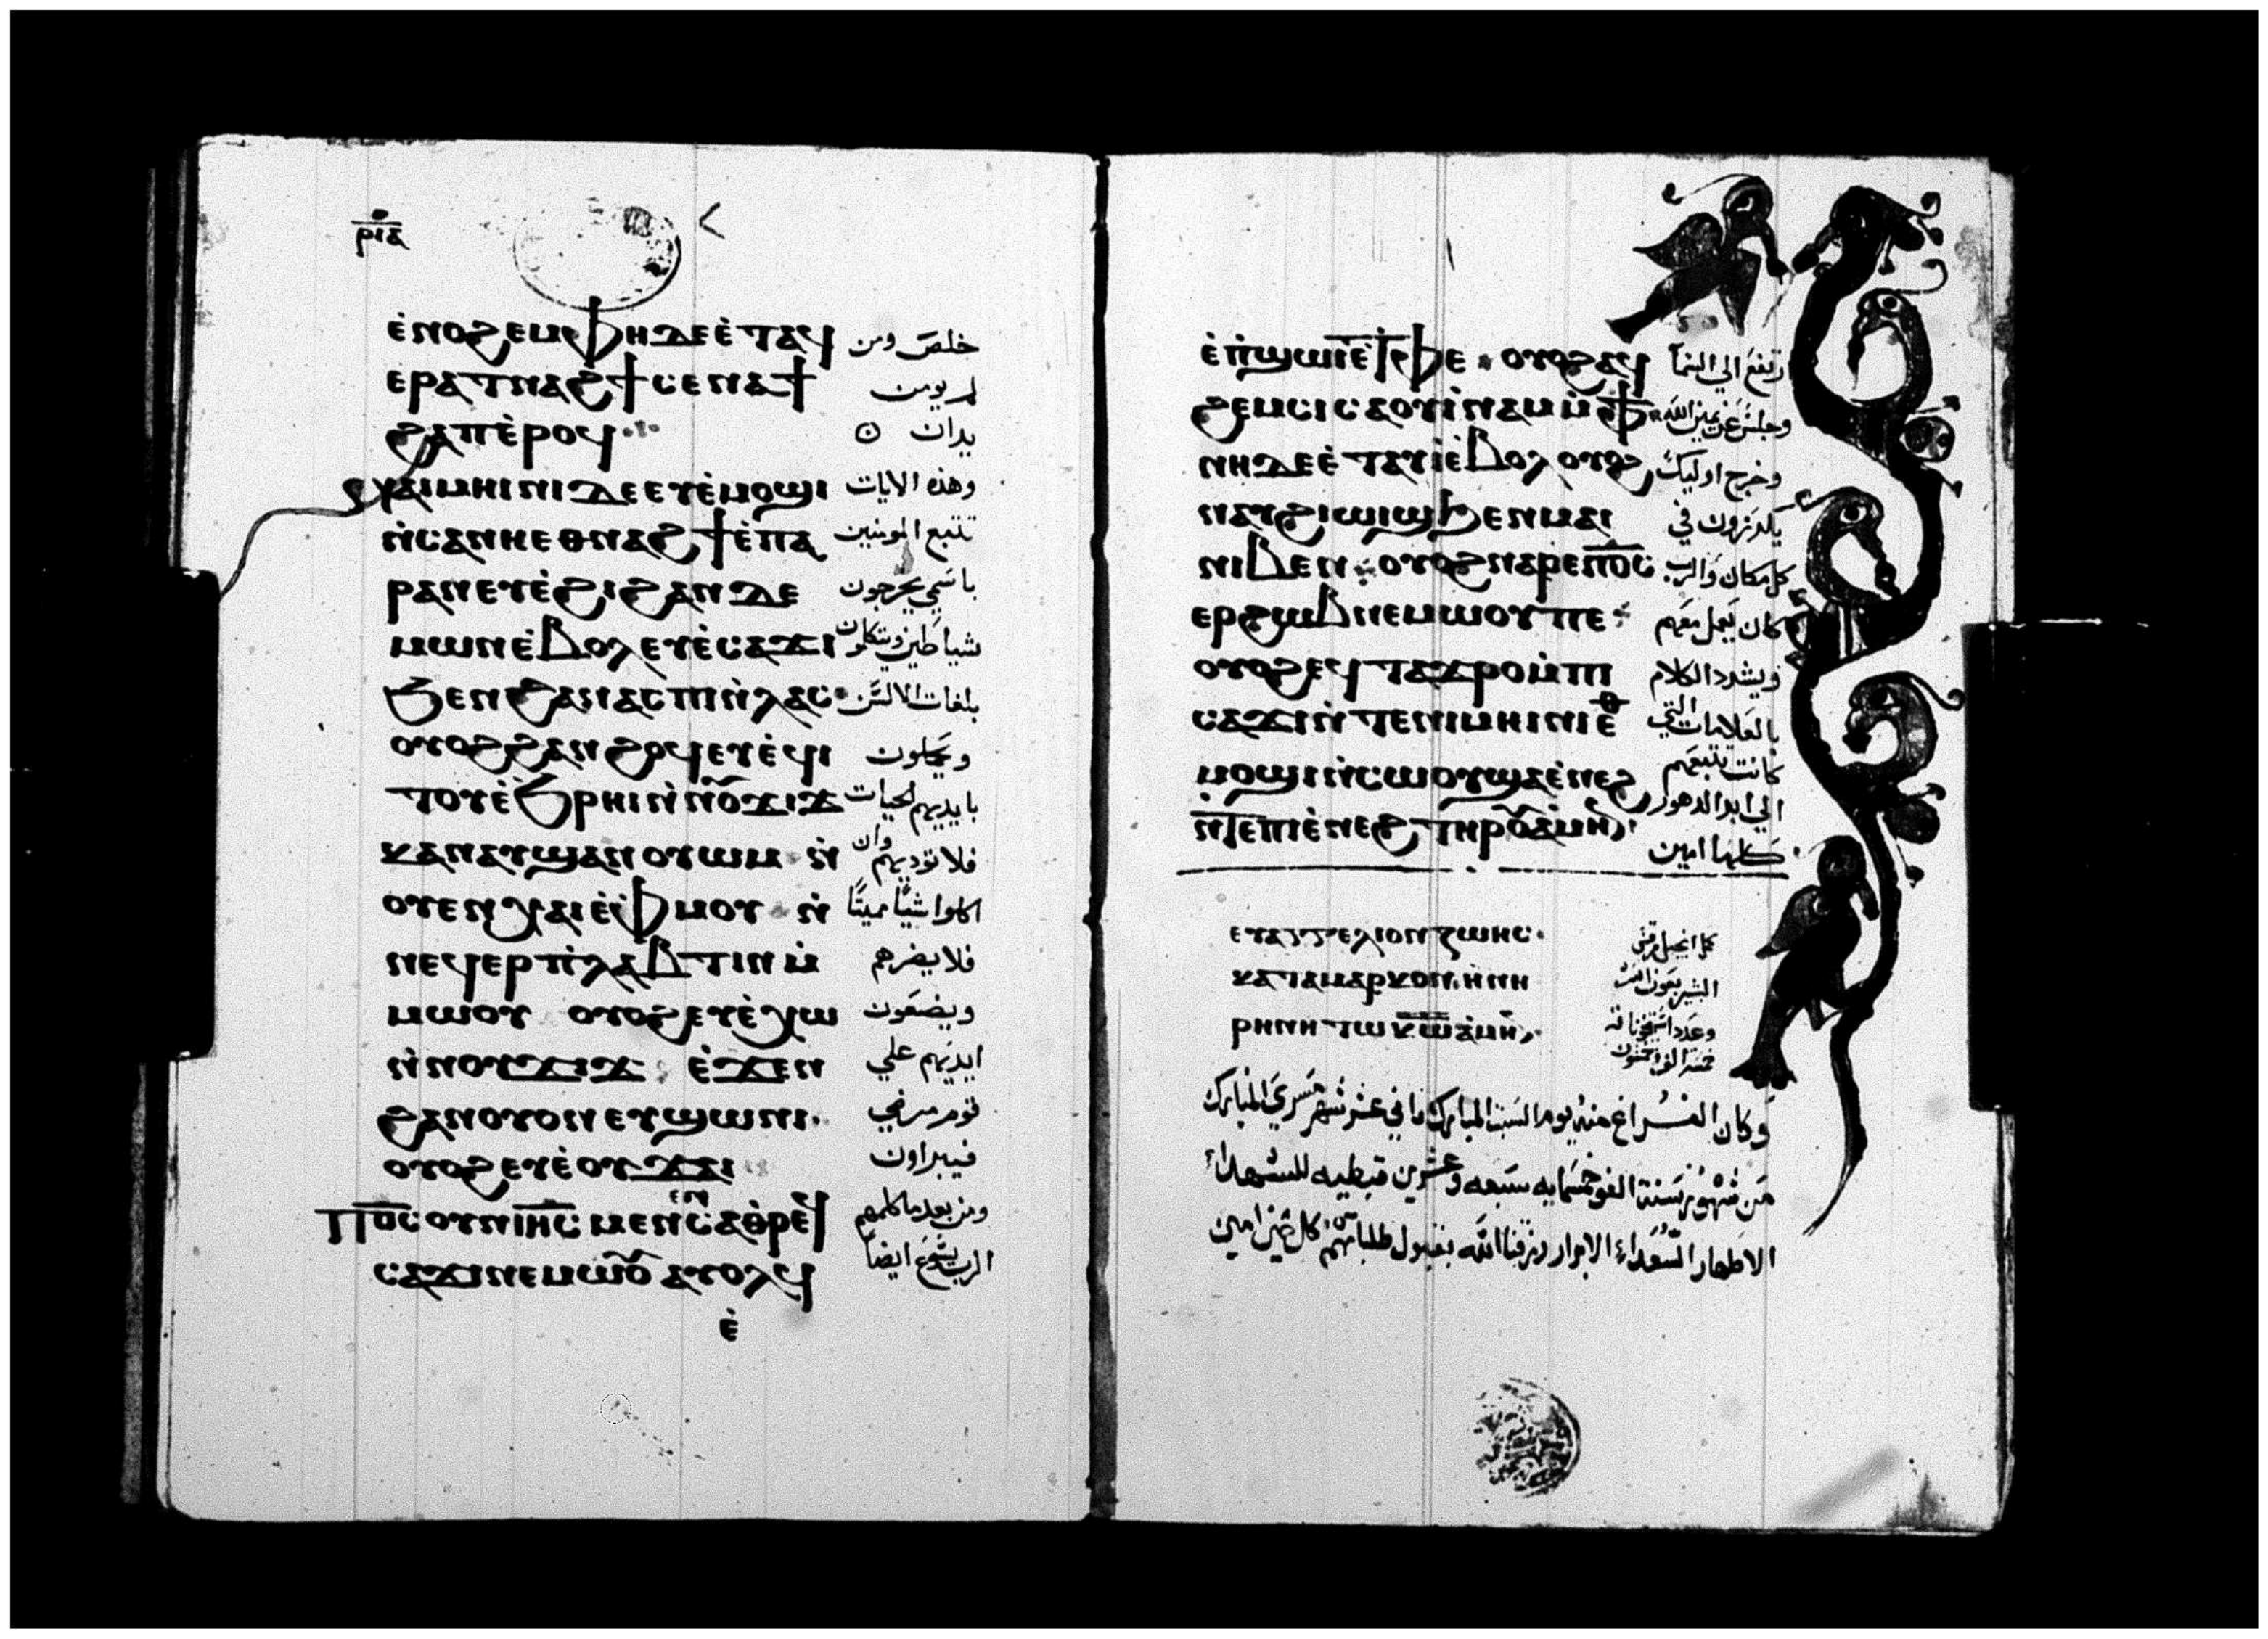 ⲣⲓⲁ
ⲉ̀ⲛⲟϩⲉⲙ ⲫⲏⲇⲉ ⲉ̀ⲧⲁϥ خلص ومن
ⲉⲣⲁⲧⲛⲁϩϯ ⲥⲉⲛⲁϯ لم يومن
ϩⲁⲡ ⲉ̀ⲣⲟϥ يدان
ⲛⲁⲓⲙⲏⲓⲛⲓ ⲇⲉ ⲉⲩⲉ̀ⲙⲟϣⲓ وهذه الايات
ⲛ̀ⲥⲁⲛⲏⲉⲑⲛⲁϩϯ ⲉ̀ⲡⲁ تتبع المومنين
ⲣⲁⲛ ⲉⲩⲉ̀ϩⲓ ϩⲁⲛ ⲇⲉ باسمي يخرجون
ⲙⲱⲛ ⲉ̀ⲃⲟⲗ ⲉⲩⲉ̀ⲥⲁϫⲓ شياطين ويتكلمون
ϧⲉⲛ ϩⲁⲛⲁⲥⲡⲓ ⲛ̀ⲗⲁⲥ بلغات الالسن
ⲟⲩⲟϩ ϩⲁⲛ ϩⲟϥ ⲉⲩⲉ̀ϥⲓ ويحملون
ⲧⲟⲩ ⲉ̀ϧⲣⲏⲓ ⲛ̀ⲛⲟ̅ϫⲓϫ بايديهم الحيات
ⲕⲁⲛ ⲁⲩϣⲁⲛⲟⲩⲱⲙ ⲛ̀ فلا توديهم وان
ⲟⲩⲉⲛⲭⲁⲓ ⲉ̀ⲫⲙⲟⲩ ⲛ̀ اكلوا شيًا مميتًا
ⲛⲉϥⲉⲣⲡ̀ⲗⲁⲃⲧⲓⲛ ⲙ̀ فلا يضرهم
ⲙⲱⲟⲩ ⲟⲩⲟϩ ⲉⲩⲉ̀ⲭⲱ ويضعون
ⲛ̀ⲛⲟⲩϫⲓϫ ⲉ̀ϫⲉⲛ ايديهم علي
ϩⲁⲛⲟⲩⲟⲛ ⲉⲩϣⲱⲛⲓ قوم مرضي
ⲟⲩⲟϩ ⲉⲩⲉ̀ⲟⲩϫⲁⲓ فيبراون
ⲡⲟ̅ⲥ̅ ⲟⲩⲛ ⲓⲏ̅ⲥ̅ ⲙⲉⲛⲉⲛⲥⲁⲑⲣⲉϥ ومن بعدما كلمهم
ⲥⲁϫⲓ ⲛⲉⲙⲱⲟ̅ ⲁⲩⲟⲗϥ الرب يسوع ايضا
ⲉ̀
ⲉ̀ⲡ̀ϣⲱⲓ ⲉ̀ⲧⲫⲉ ⲟⲩⲟϩ ⲁϥ ارتفع الي السمآ
ϩⲉⲙⲥⲓ ⲥⲁⲟⲩⲓ̀ⲛⲁⲙ ⲙ̀ⲫϯ وجلس عن يمين الله
ⲛⲏⲇⲉ ⲉ̀ⲧⲁⲩⲓ̀ ⲉ̀ⲃⲟⲗ ⲟⲩⲟϩ وخرج اوليك
ⲛⲁⲩϩⲓⲱⲓϣ ϧⲉⲛ ⲙⲁⲓ يكرزون في
ⲛⲓⲃⲉⲛ ⲟⲩⲟϩ ⲛⲁⲣⲉⲡⲟ̅ⲥ̅ كل مكان والرب
ⲉⲣϩⲱⲃ ⲛⲉⲙⲱⲟⲩ ⲡⲉ كان يعمل معهم
ⲟⲩⲟϩ ⲉϥⲧⲁϫⲣⲟ ⲙ̀ⲡⲓ ويشدد الكلام
ⲥⲁϫⲓ ⲛ̀ⲧⲉⲛⲓⲙⲏⲓⲛⲓ ⲉ̅ⲑ̅ بالعلامات التي
ⲙⲟϣⲓ ⲛ̀ⲥⲱⲟⲩ ϣⲁ ⲉ̀ⲛⲉϩ كانت تتبعهم
ⲛ̀ⲧⲉⲡⲓⲉ̀ⲛⲉϩ ⲧⲏⲣⲟ̅ ⲁ̀ⲙⲏⲛ الي ابد الدهور
كلها امين
ⲉⲩⲁⲅⲅⲉⲗⲓⲟⲛ ⲍⲱⲏⲥ كمل انجيل مرقس
ⲕⲁⲧⲁ ⲙⲁⲣⲕⲟⲛ ⲏⲛⲏ البشير بعون الله
ⲣⲏⲛⲏ ⲧⲱ ⲕ̅ⲱ̅ ⲁ̀ⲙⲏⲛ
وكان الفراغ منه يوم السبت المبارك ثاني عشر شهر مسري المبارك
من شهور سنة الف وخمسمايه سبعه وعشرين قبطيه للشهداء
الاطهار السعداء الابرار رزقنا الله بقبول طلباتهم كل حين امين